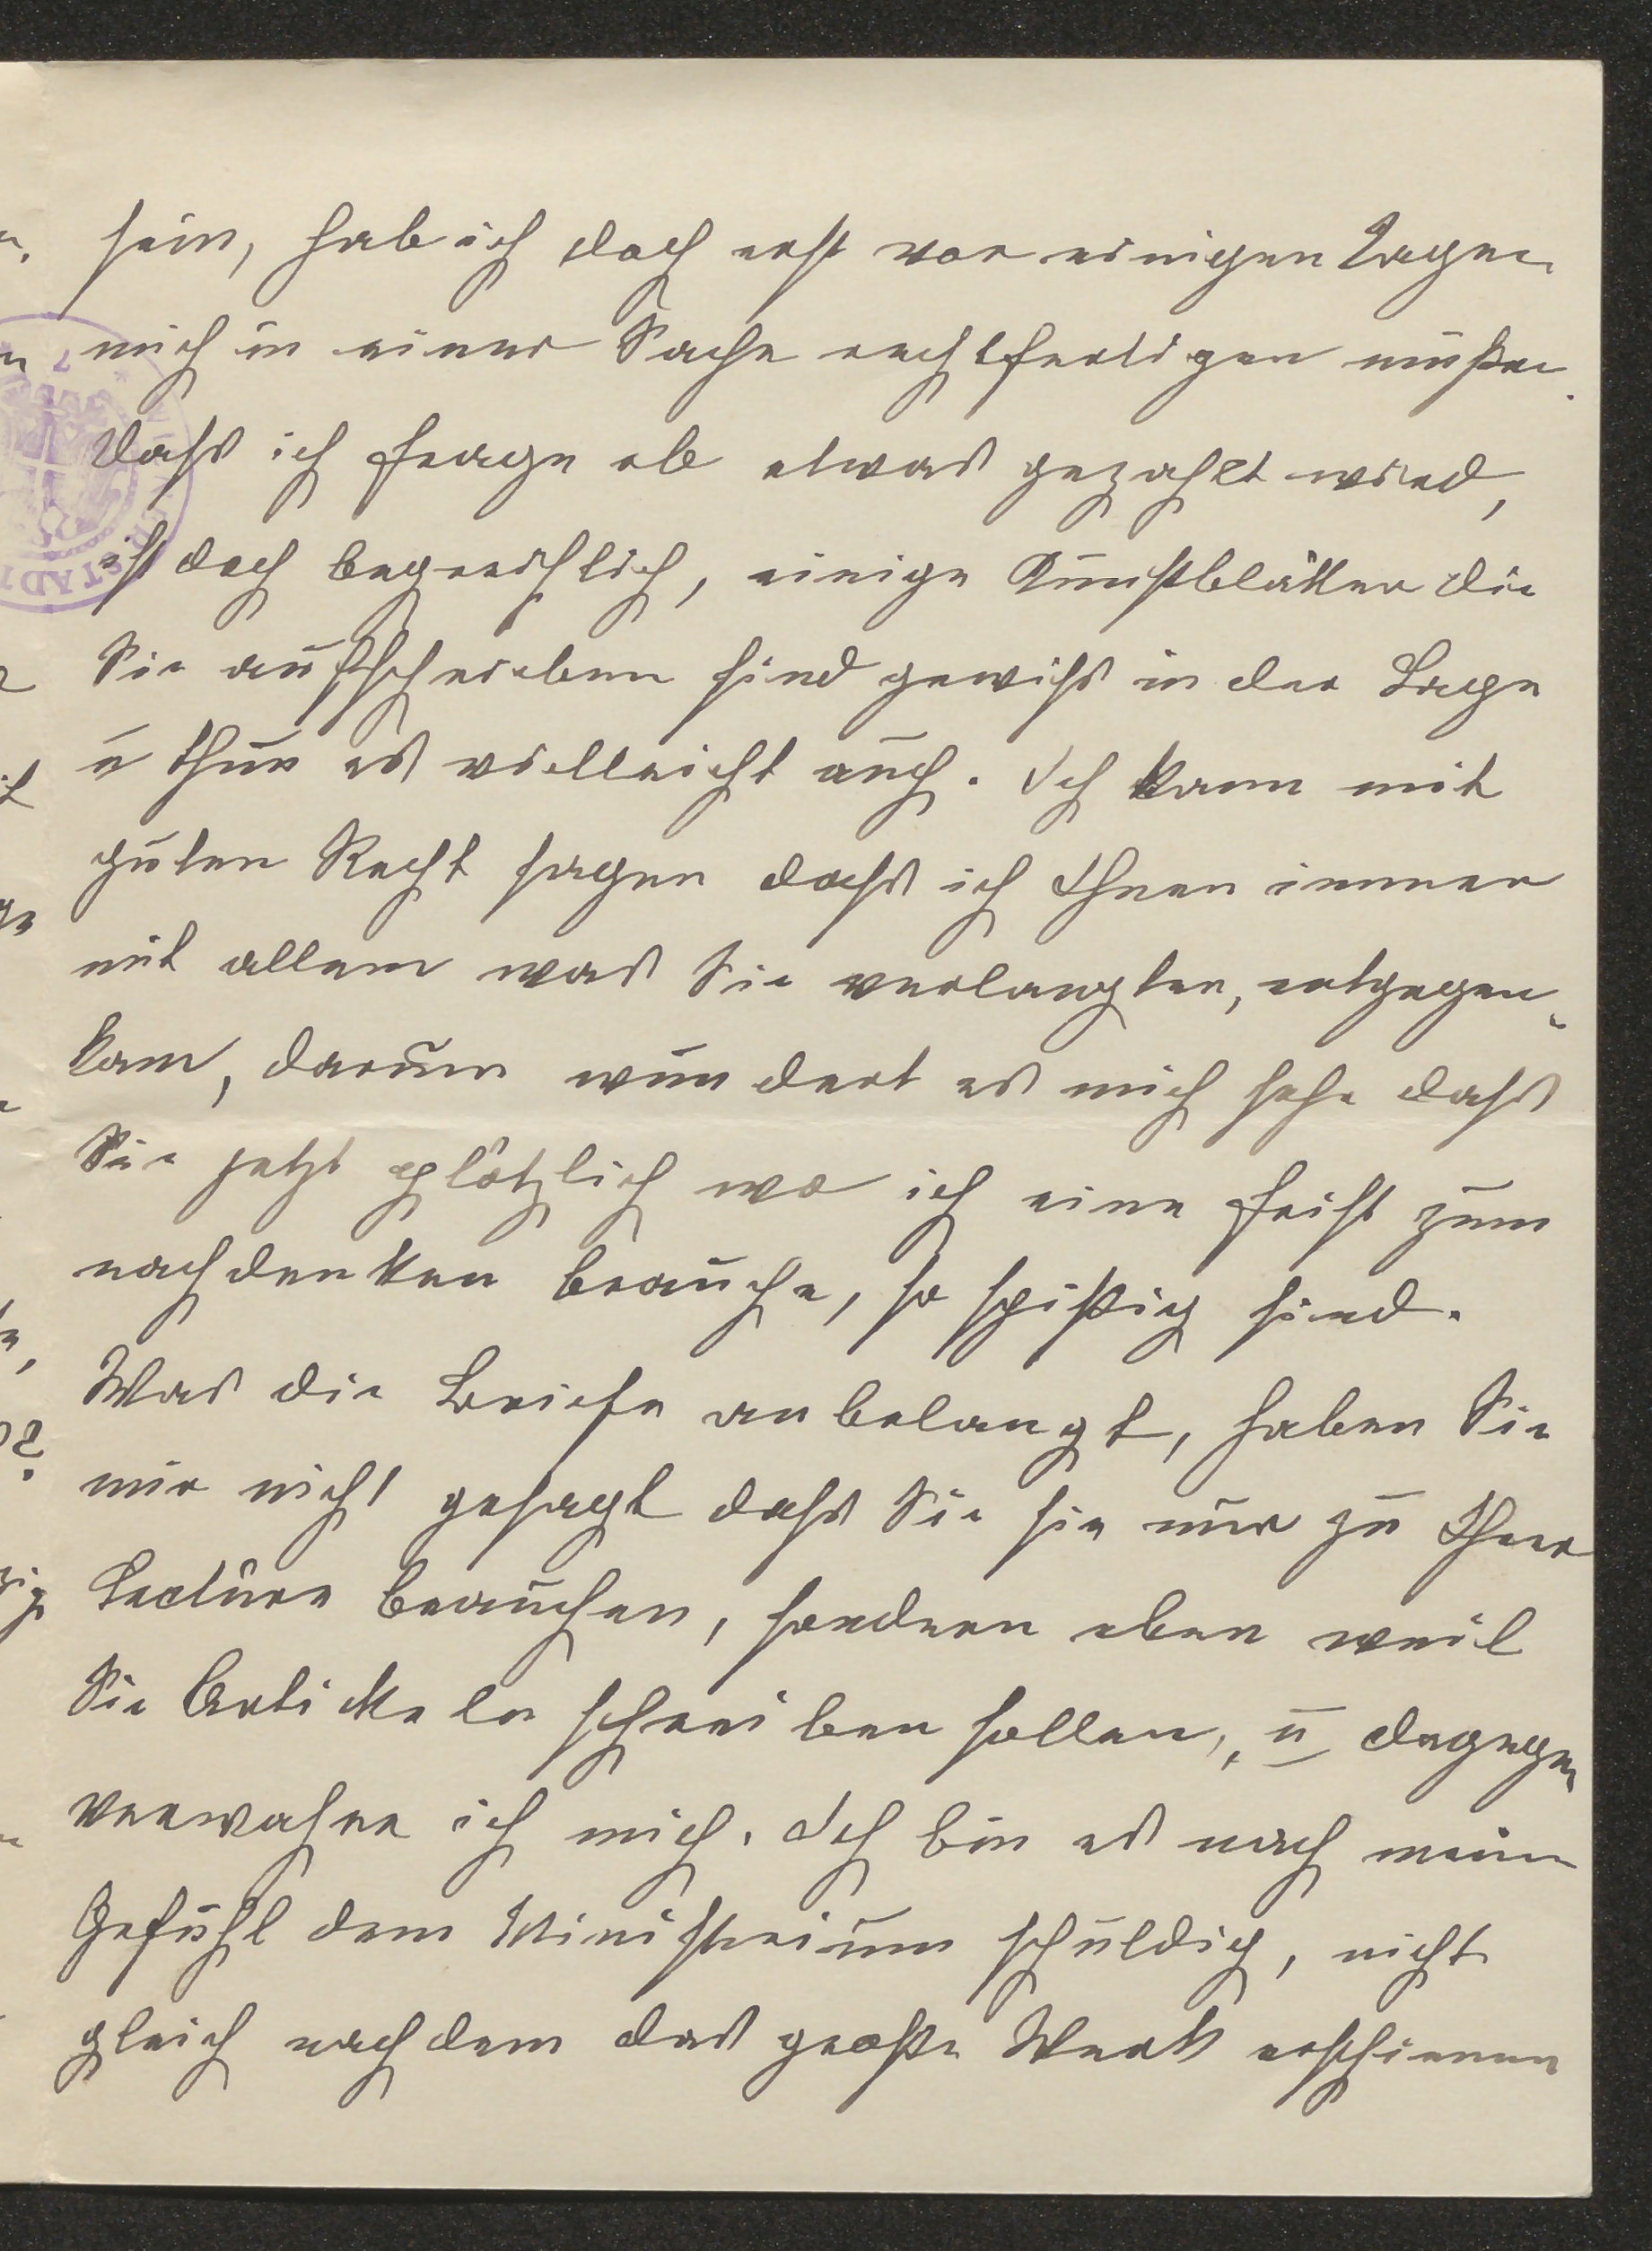 sein, hab ich doch erst vor einigen Tagen
mich in einer Sache rechtfertigen müßen.
Dass ich frage ob etwas gezahlt wird,
ist doch begreiflich, einige Kunstblätter die
Sie aufschrieben sind gewiss in der Lage
u thun es vielleicht auch. Ich kann mit
guten Recht sagen dass ich Ihnen immer
mit allem was Sie verlangten, entgegen-
kam, darum wundert es mich sehr dass
Sie jetzt plötzlich wo ich eine Frist zum
nachdenken brauche, so spißig sind.
Was die Briefe anbelangt, haben Sie
mir nicht gesagt dass Sie sie nur zu Ihrer
Lectüre brauchen, sondern eben weil
Sie Artickeln schreiben sollen, u dagegen
verwahre ich mich. Ich bin es nach mein
Gefühl dem Ministerium schuldig, nicht
gleich nachdem das große Werk erschienen